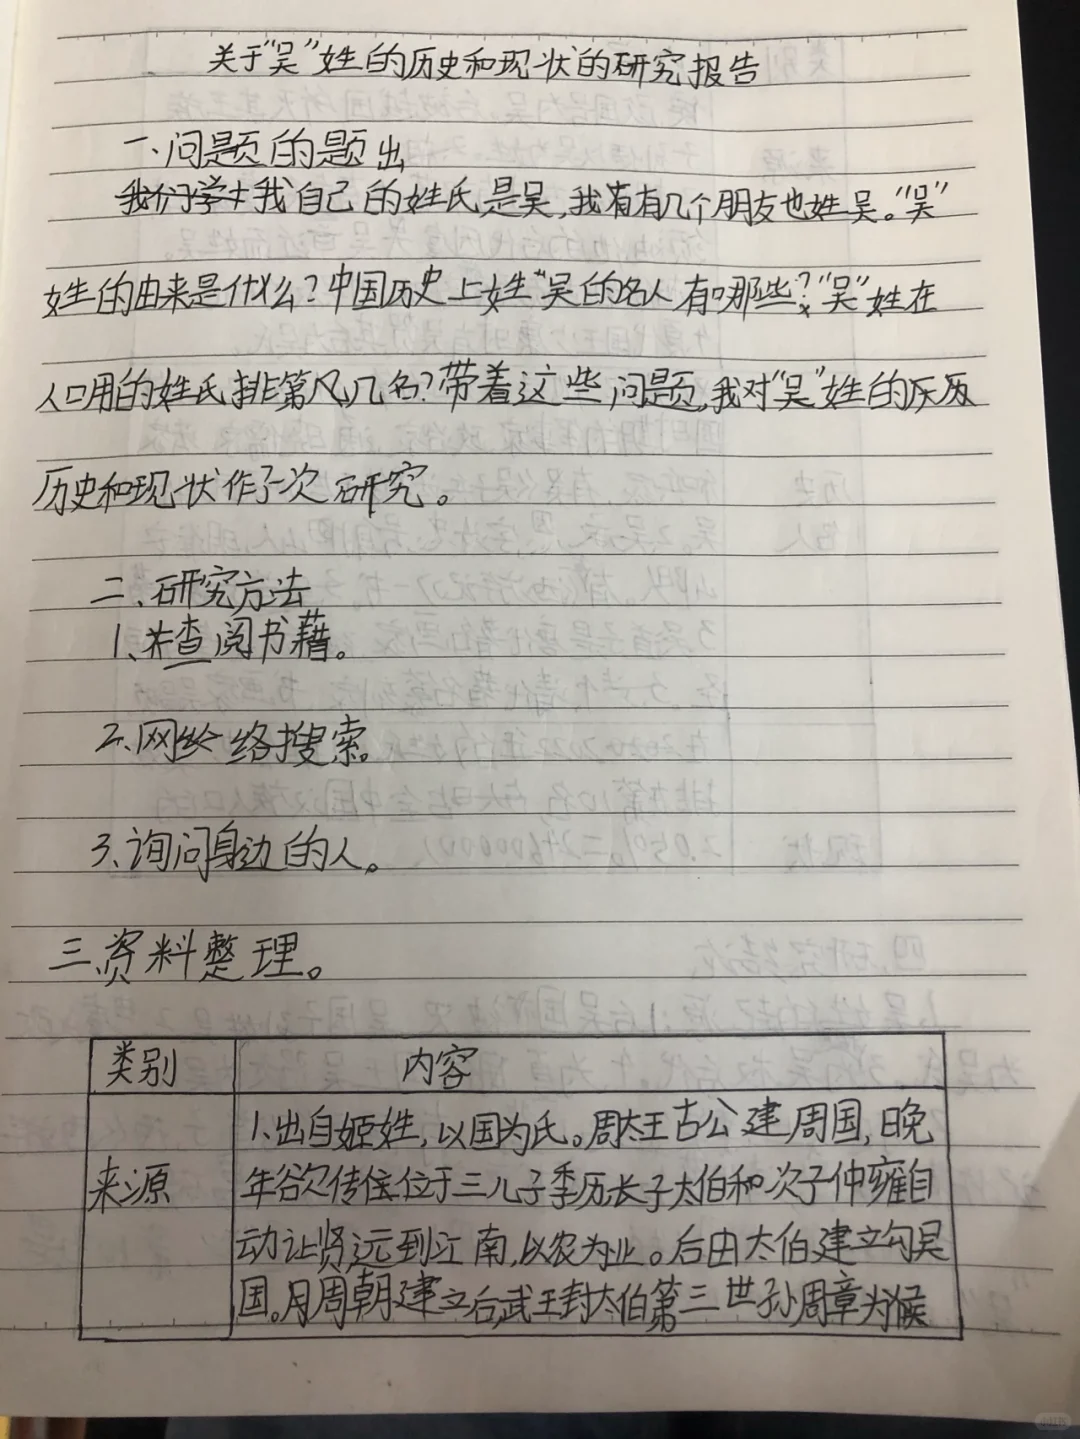 关于“吴”姓的历史和现状的研究报告
一、问题的题出
我自己的姓氏是吴，我有有几个朋友也姓吴。“吴”
姓的由来是什么？中国历史上姓“吴的名人有哪些？“吴”姓在
人口用的姓氏排第几几名？带着这些问题，我对“吴”姓的历
历史和现状作了一次研究。
二、研究方法
1、查阅书藉。
2、网络搜索。
3、询问身边的人。
三、资料整理。
类别 内容
1、出自姬姓，以国为氏。周太王古公建周国，晚
年欲传位于三儿子季历长子太伯和次子仲雍自
来源
动让贤远到江南，以农为业。后由太伯建立勾吴
国。周朝建立后武王封太伯第三世孙周章为候